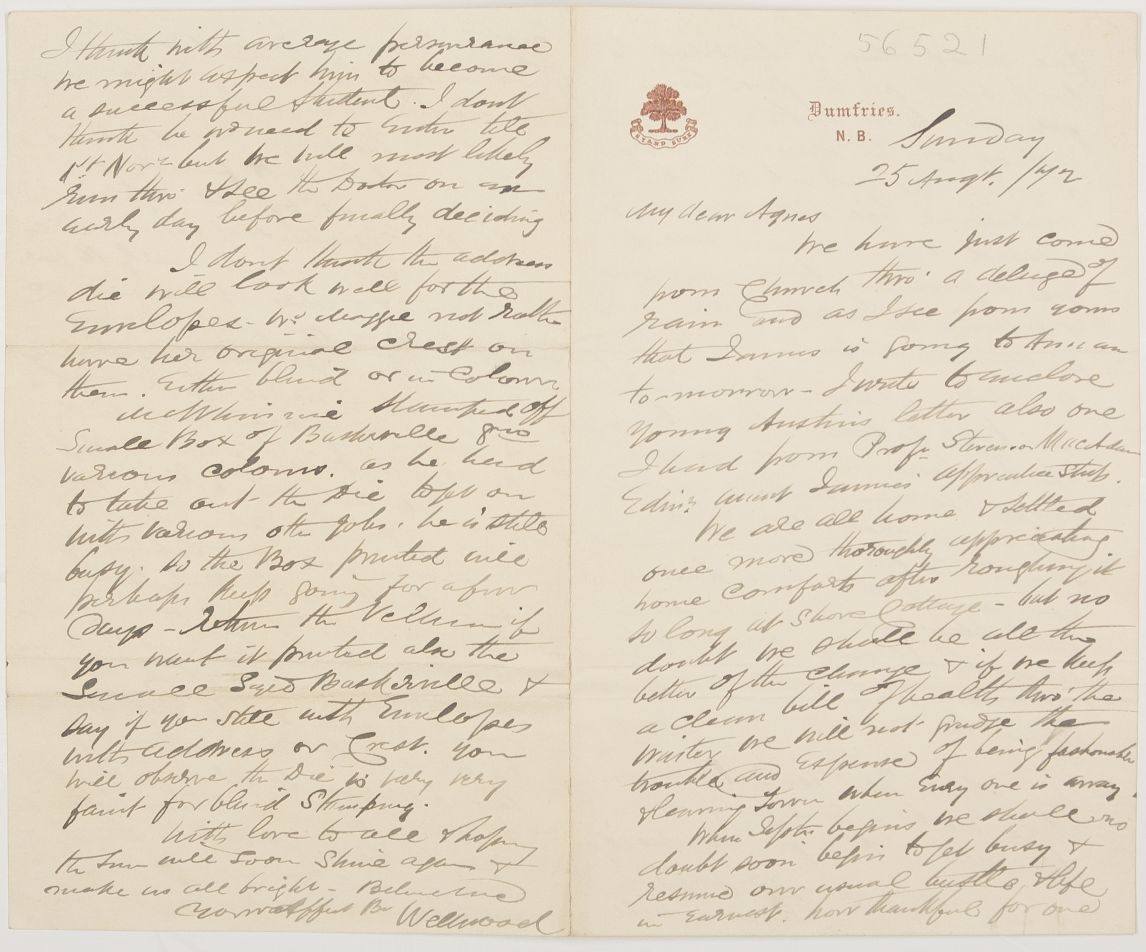 56521
STAND SURE
Dumfries.
N. B.
Sunday
25 Augt. /72
My dear Agnes
We have just come
from Church thro' a deluge of
rain and as I see from yours
that James is going to Annan
to-morrow - I write to enclose
young Austins letter also one
I had from Profr Stevenson MacAdam
Edinr anent Jamies apprenticeship.
We are all home & settled
once more thoroughly appreciating
home comforts after roughing it
so long at Shore Cottage - but no
doubt we shall be all the
better of the change & if we keep
a clean bill of health thro' the
winter we will not grudge the
trouble and Expense of being fashionable
& leaving Town when Every one is away.
When Septr. begins we shall no
doubt soon begin to get busy &
resume our usual bustle & life
in Earnest. how thankful for one
I think with average perserverance
we might expect him to become
a successful student. I dont
think he need to Enter till
1st Novr but we will most likely
run thro' & see the Doctor on an
early day before finally deciding
I dont think the address
die will look well for the
Envelopes - Wd. Maggie not rather
have her original Crest on
them. Either blind or in Colour
McWhinnie stamped off
Small Box of Baskerville
various colours. as he had
to take out the Die to get on
with various othr Jobs. he is still
busy. So the Box printed will
perhaps keep going for a few
days - return the Vellum if
you want it printed also the
Small Sqed Baskerville &
Say if you State with Envelopes
with address or Crest. you
will observe the Die is very very
faint for blind Stamping.
With love to all & hoping
the Sun will Soon Shine again &
make us all bright - Believe me
Your affect Br
Wellwood